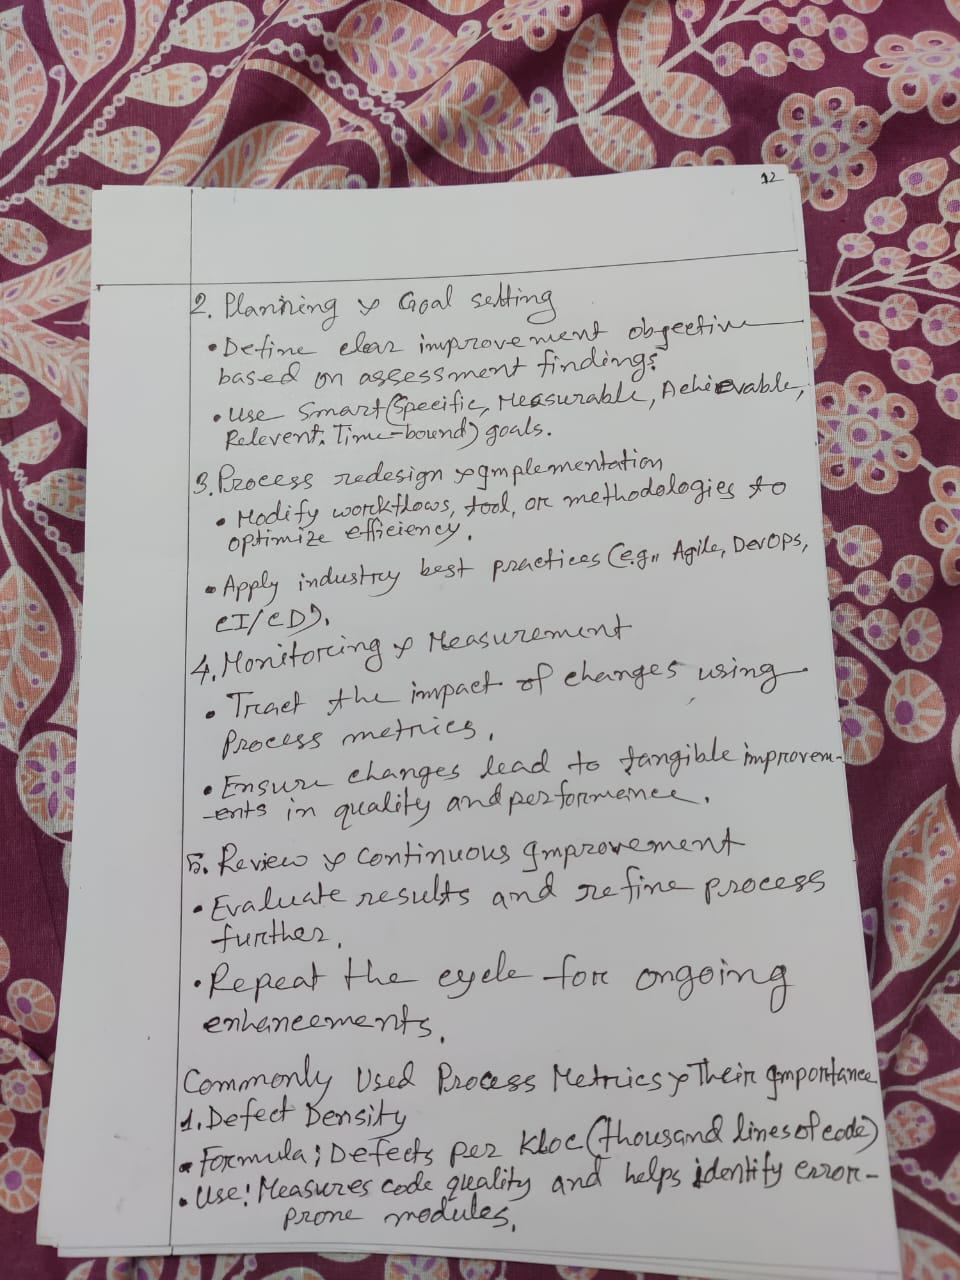 12
2. Planning & Goal setting
• Define clear improvement objective
based on assessment findings.
• Use Smart (Specific, Measurable, Achievable,
Relevent, Time-bound) goals.
3. Process redesign & Implementation
• Modify workflows, tool, or methodologies to
optimize efficiency.
• Apply industry best practices (e.g., Agile, DevOps,
CI/CD).
4. Monitoring & Measurement
• Tract the impact of changes using
Process metrics.
• Ensure changes lead to tangible improvem-
-ents in quality and performence.
5. Review & Continuous Improvement
• Evaluate results and refine process
further.
• Repeat the cycle for ongoing
enhancements.
Commonly Used Process Metrics & Their Importance
1. Defect Density
• Formula: Defects per Kloc (thousand lines of code)
• Use: Measures code quality and helps identify error-
prone modules.